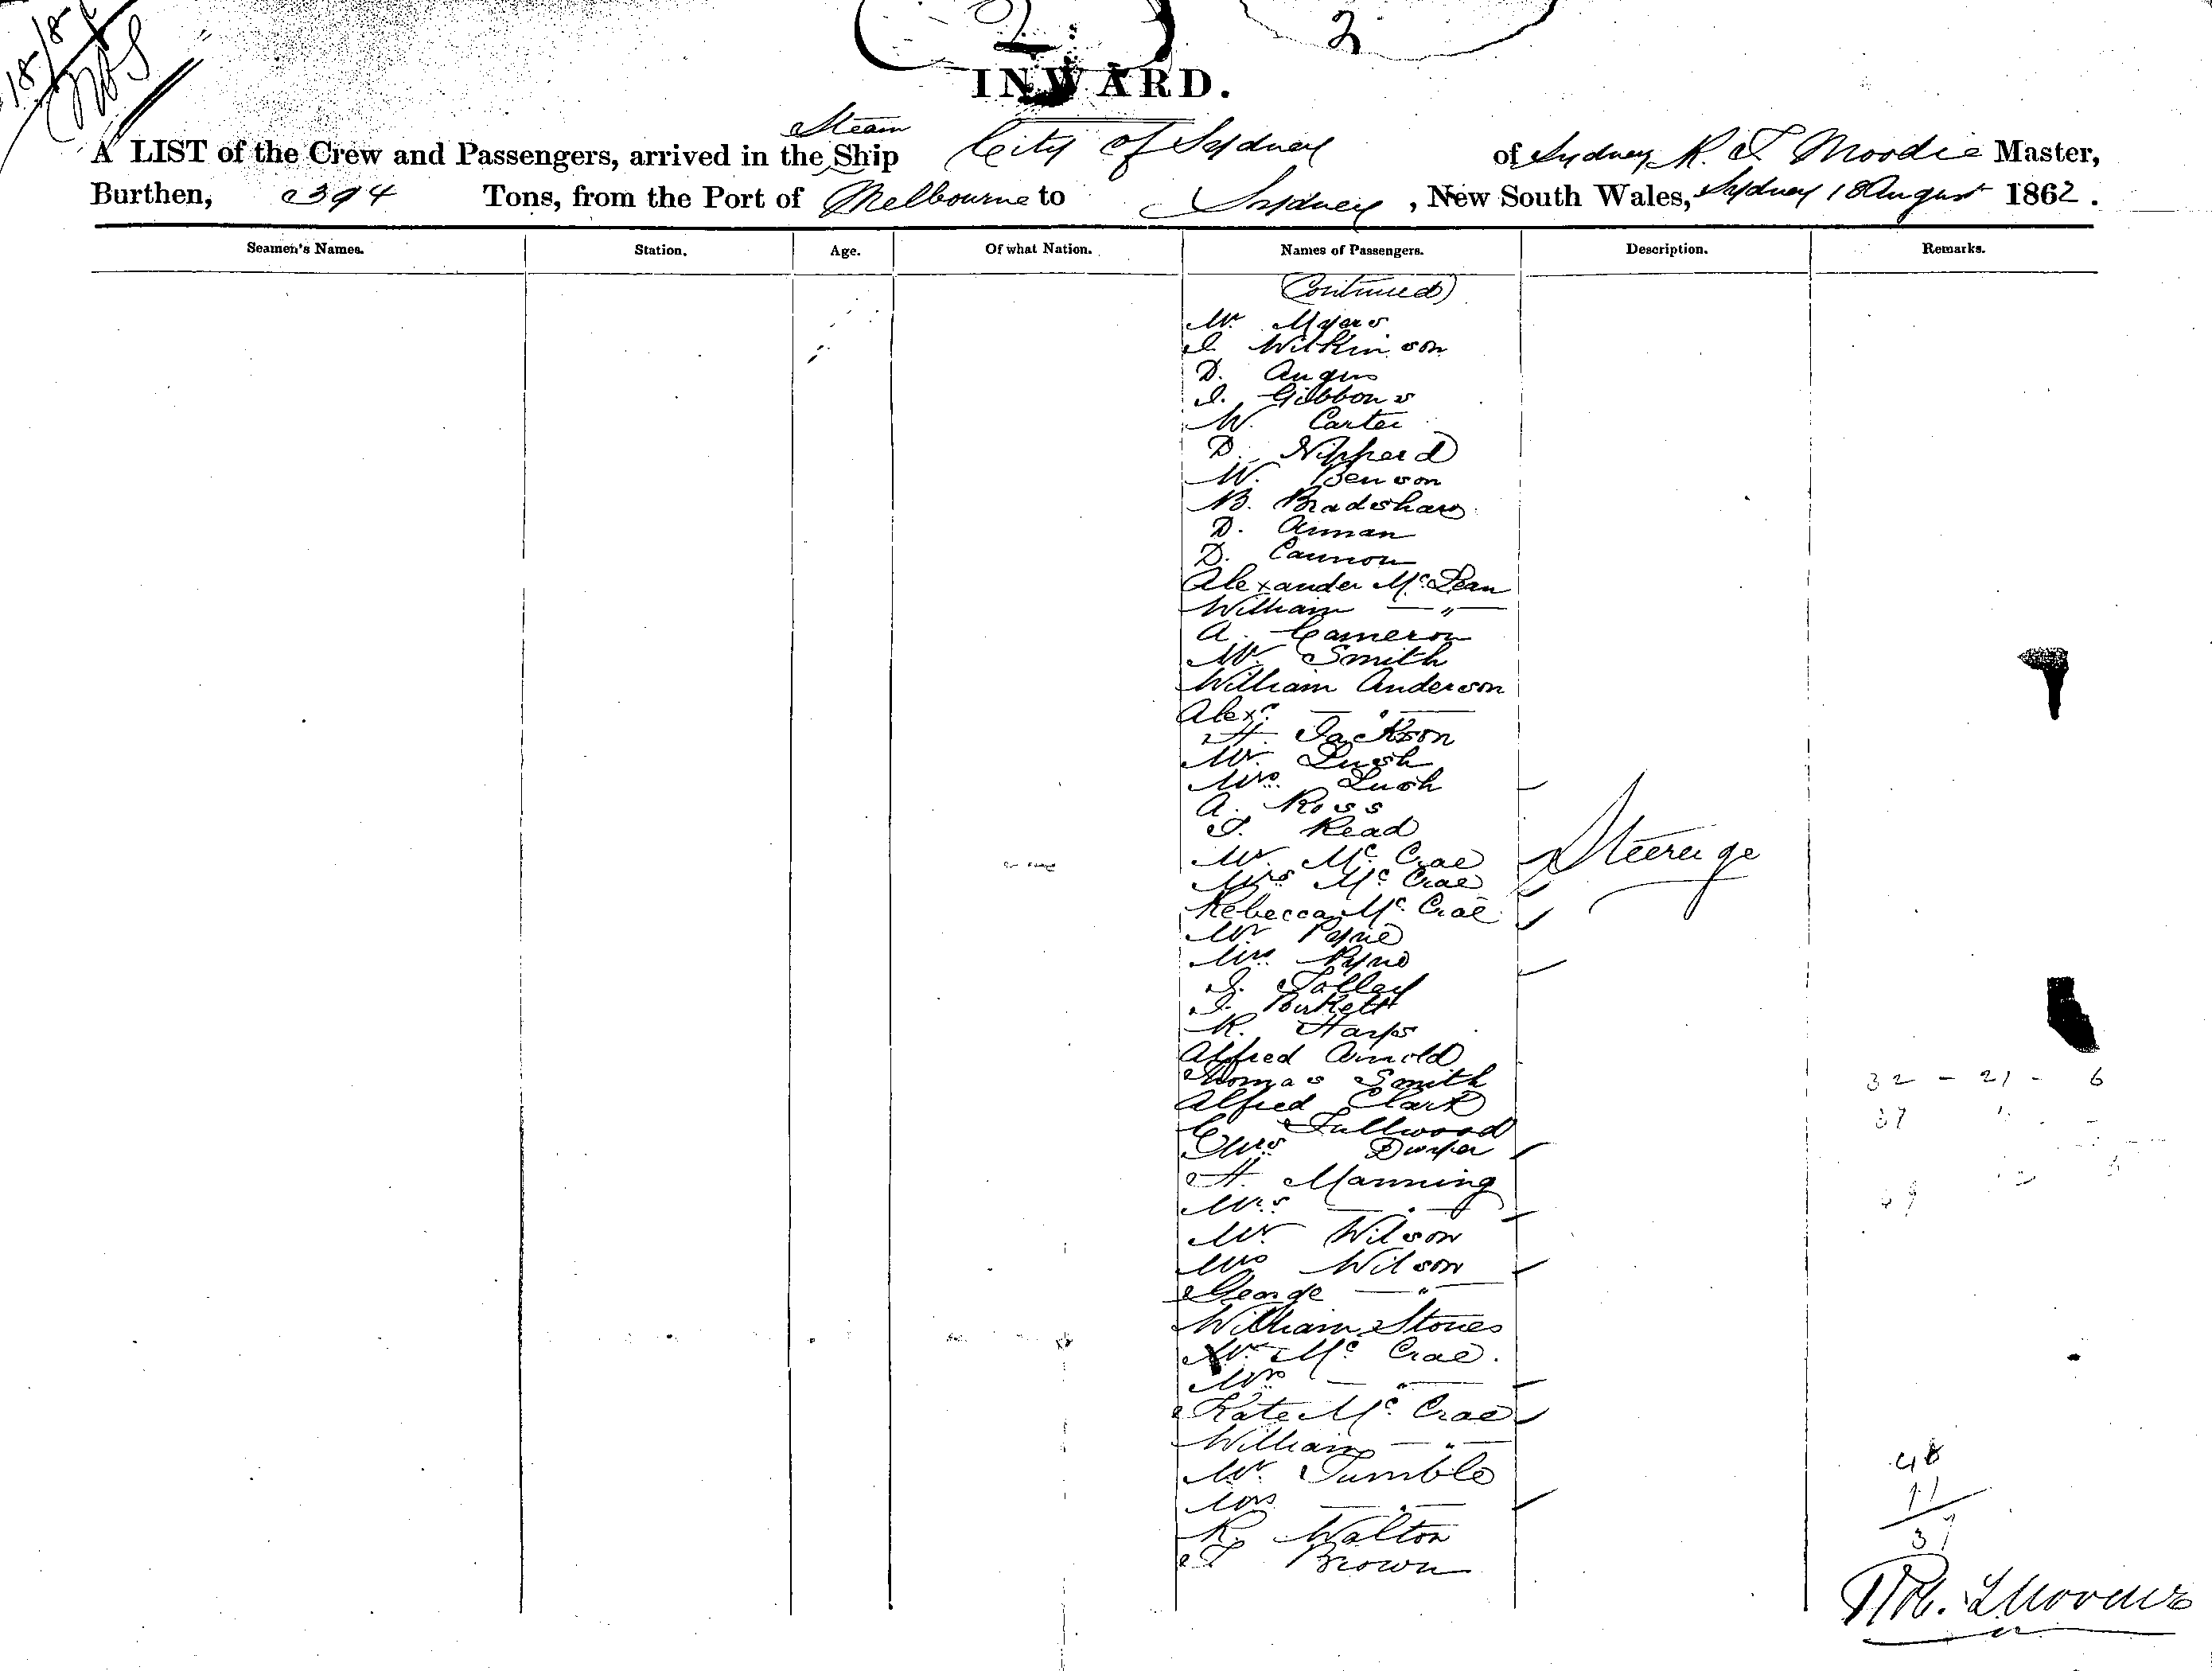 18/8
2
2
INWARD.
Steam
A LIST of the Crew and Passengers, arrived in the Ship City of Sydney of Sydney R. T Moodie Master,
Burthen, 394 Tons, from the Port of Melbourne to Sydney, New South Wales, Sydney 18 August 1862.
Seamen's Names. Station. Age. Of what Nation. Names of Passengers. Description. Remarks.
(Continued)
Mr. Myers
J. Wilkinson
D. Angus
J. Gibbons
W. Carter
D. Nipperd
W. Benson
B. Bradshaw
D. Arman
D. Cannon
Alexander Mc. Lean
William — " —
A. Cameron
W. Smith
William Anderson
Alexr. — " —
H. Jackson
Mr. Lush
Mrs. Lush
A. Ross
J. Read
Mr. Mc Crae Steerage
Mrs Mc Crae
Rebecca Mc. Crae
Mr Pyne
Mrs. Pyne
J. Tolley
J. Birkett
R. Harps
Alfred Arnold
Thomas Smith
32 - 21 - 6
Alfred Clark
37
C Fullwood
Mrs
H. Manning
Mrs. — " —
Mr. Wilson
Mrs Wilson
George — " —
William Stones
Mr. Mc. Crae.
Mrs — " —
Kate Mc. Crae
William — " —
48
Mr. Tumble
11
Mrs — " —
37
R. Walton
T Brown